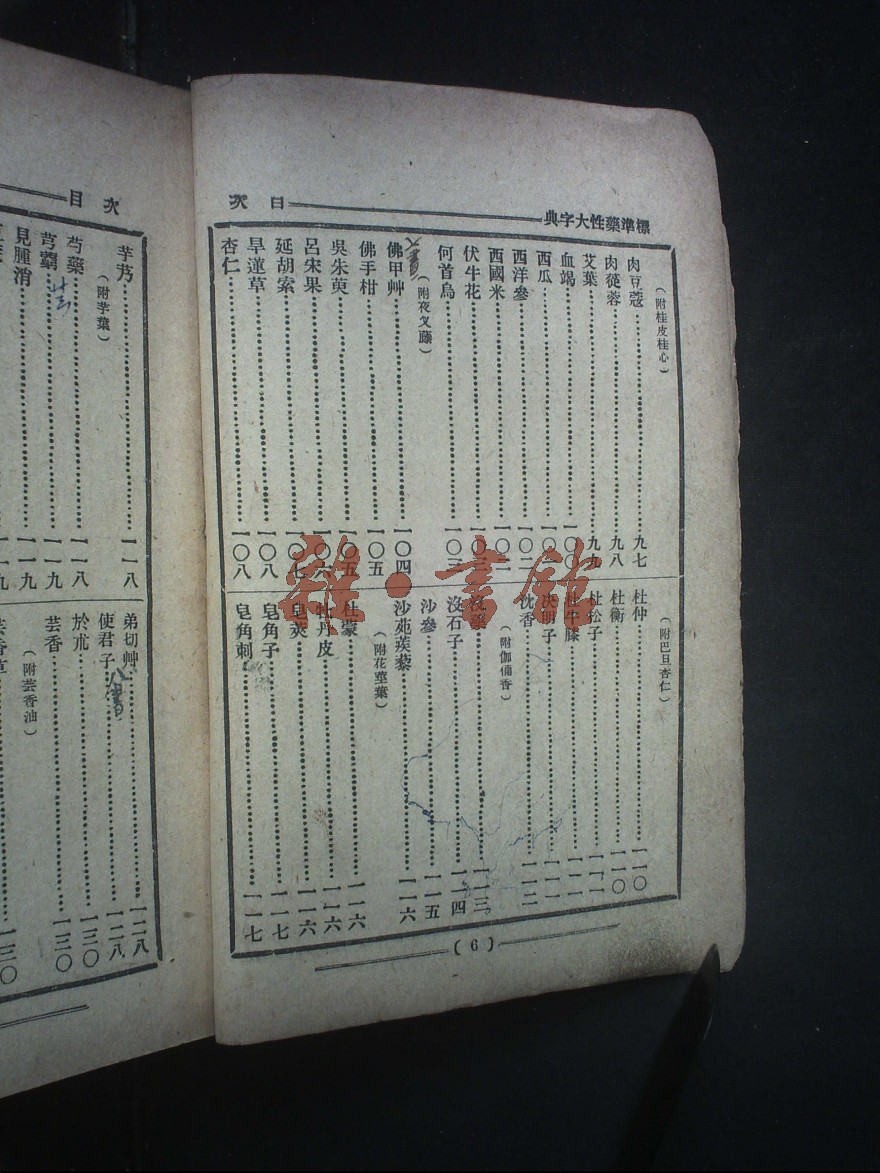 標準藥性大字典
目次
（附桂皮桂心）
肉豆蔻 九七
肉蓯蓉 九八
艾葉 九九
血竭 一〇〇
西瓜
西洋參 一〇二
西國米 一〇二
伏牛花
何首烏 一〇三
（附夜交藤）
佛甲艸 一〇四
佛手柑 一〇五
吳朱萸 一〇五
呂宋果 一〇六
延胡索 一〇七
旱蓮草 一〇八
杏仁 一〇八
（附巴旦杏仁）
杜仲 一一〇
杜衡 一一〇
杜松子 一一一
杜牛膝 一一一
決明子
沈香 一一二
（附伽備香）
沒藥 一一三
沒石子 一一四
沙參 一一五
沙苑蒺藜 一一六
（附花莖葉）
杜蒙 一一六
牡丹皮 一一六
皂莢 一一六
皂角子 一一七
皂角刺 一一七
（6）
目次
芋艿 一一八
（附芋葉）
芍藥 一一八
芎藭 一一九
見腫消 一一九
弟切艸 一二八
使君子 一二八
於朮 一三〇
（附芸香油）
芸香 一三〇
芸香草 一三〇
雜·書館